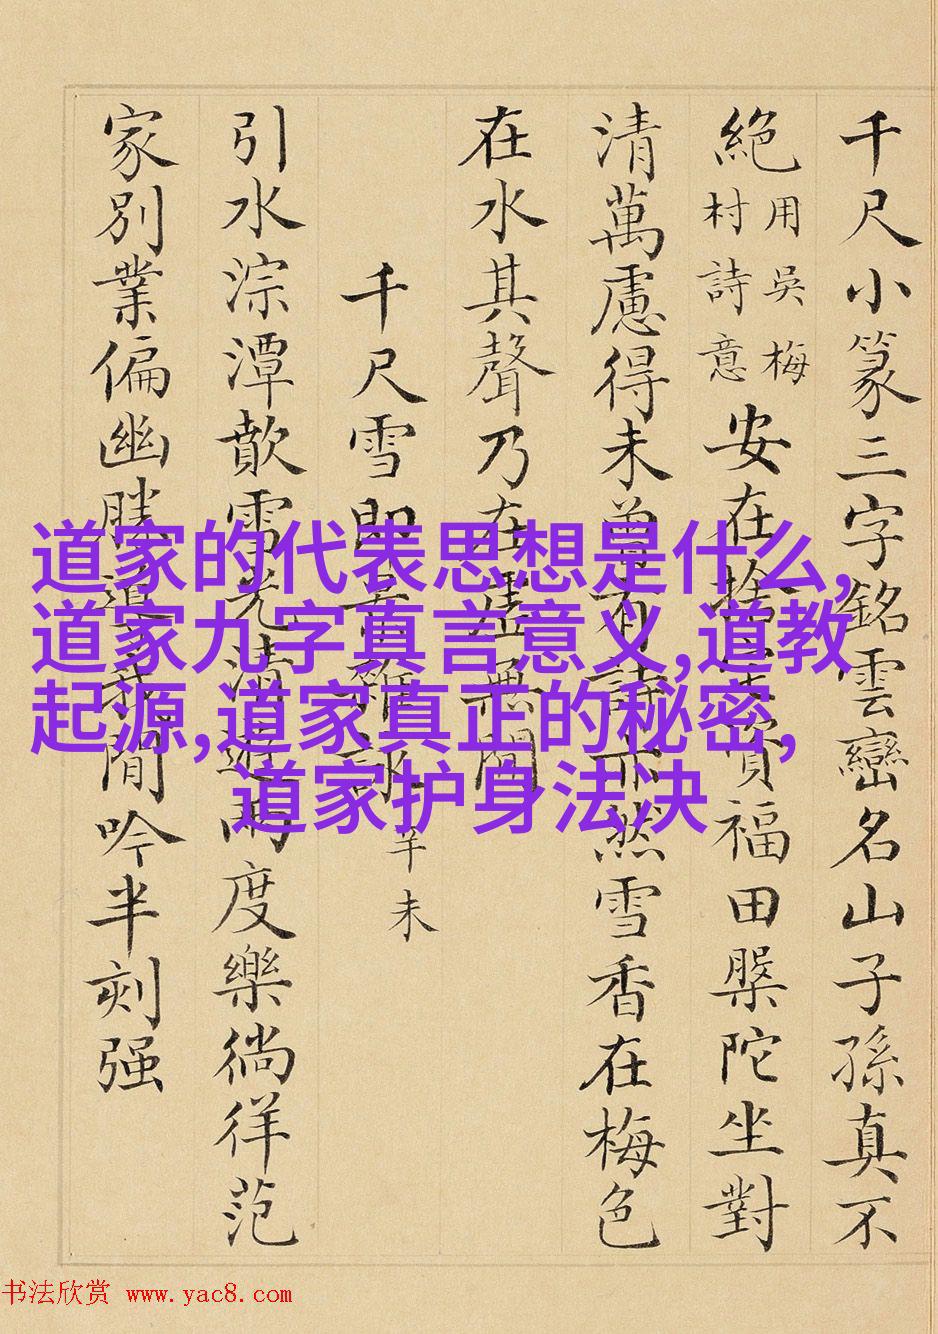 千尺小篆三字銘雲巒名山子孫真不
絶用吳梅村詩意安在捨
福田槃陀坐對
清萬慮得未曾有詩亦然雪香在梅色
在水其聲乃在虛無間
千尺雪即景雜詠辛未
引水淙潭歕雪光清遊兩度樂徜徉范
家別業偏幽勝
閒吟半刻强
道家的代表思想是什么,
道家九字真言意义,道教
起源,道家真正的秘密,
道家护身法决
书法欣赏 www.yac8.com